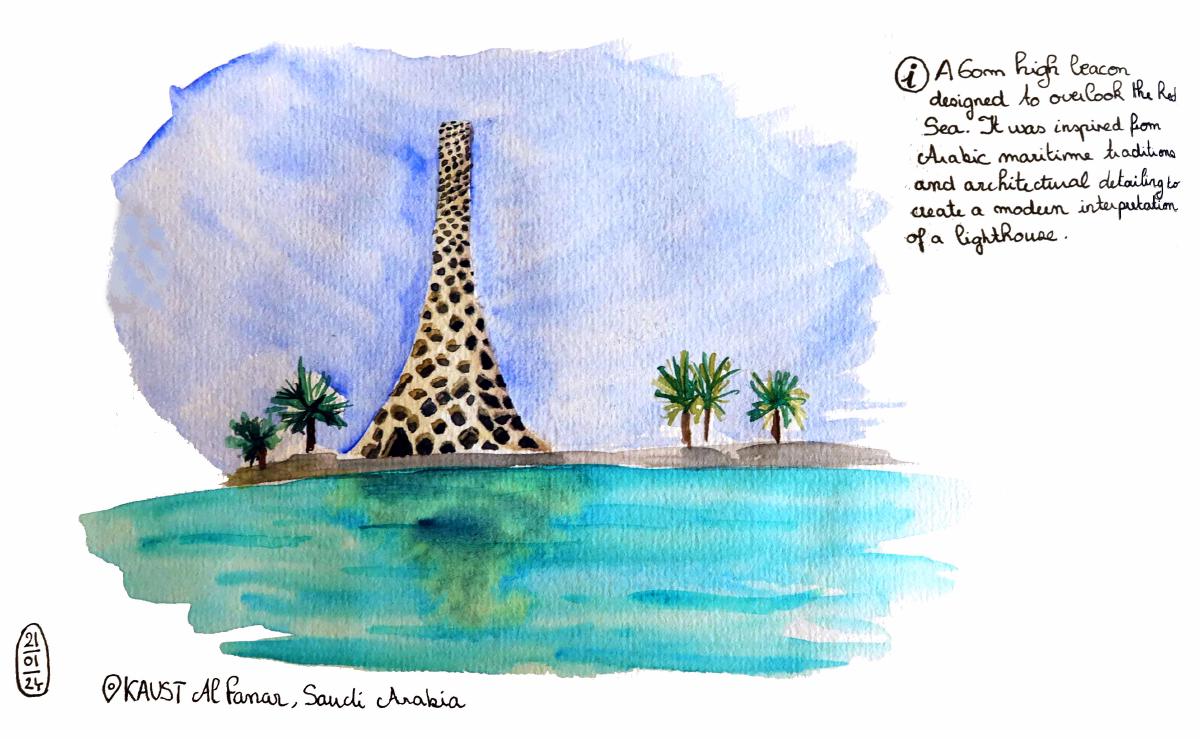 i A 60m high beacon
designed to overlook the Red
Sea. It was inspired from
Arabic maritime traditions
and architectural detailing to
create a modern interpretation
of a lighthouse.
21
01
24
KAUST Al Fanar, Saudi Arabia